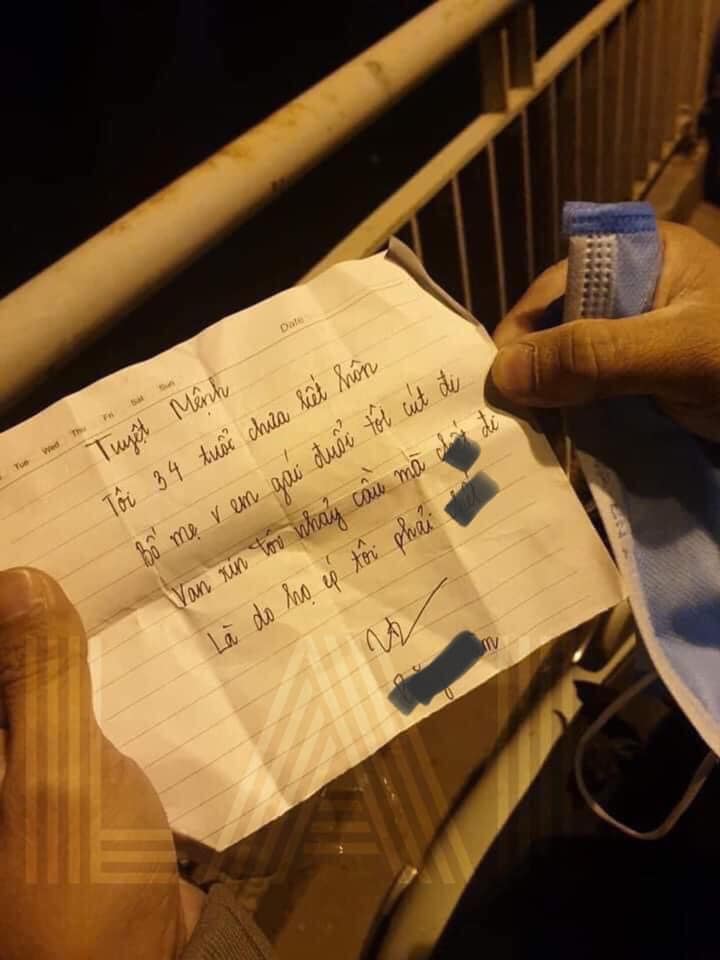 Date
Tue Wed Thu Fri Sat Sun
Tuyệt Mệnh
Tôi 34 tuổi chưa kết hôn
Bố mẹ v em gái đuổi tôi cút đi
Van xin tôi nhảy cầu mà đi
Là do họ ép tôi phải
LA